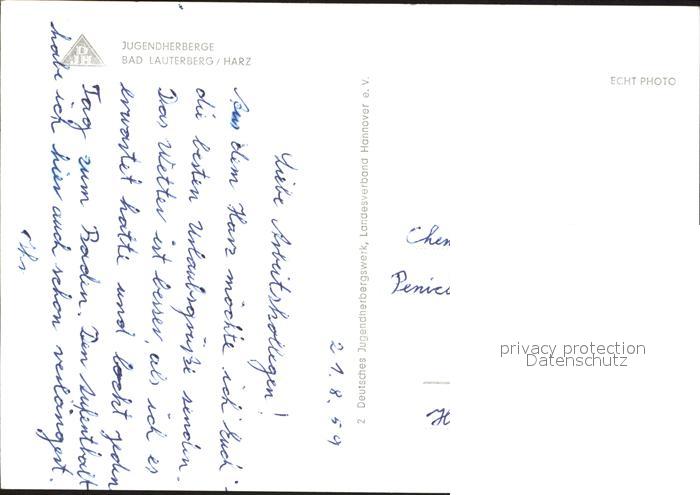 DJH
JUGENDHERBERGE
BAD LAUTERBERG / HARZ
ECHT PHOTO
2 Deutsches Jugendherbergswerk, Landesverband Hannover e. V.
21.8.59
Liebe Arbeitskollegen!
Aus dem Harz möchte ich Euch
die besten Urlaubsgrüße senden.
Das Wetter ist besser, als ich es
erwartet hatte und lockt jeden
Tag zum Baden. Den Aufenthalt
habe ich hier auch schon verlängert.
Ihr
Chem
Penici
H
privacy protection
Datenschutz